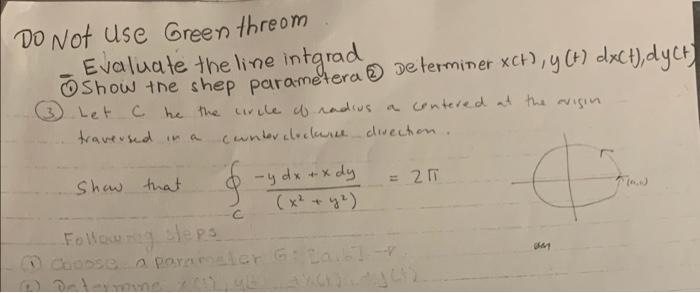 DO Not Use Green threom
Evaluate the line intgrad
① Show the shep parametera ② Determiner x(t), y(t) dx(t), dy(t)
③ Let C he the circle of radius a centered at the origin
traversed in a counter clockwise direction.
Show that ∮_C (-y dx + x dy)/(x² + y²) = 2π
(a,0)
Following steps
① choose a parameter G: [a,b] →
② Determine x(t), y(t)